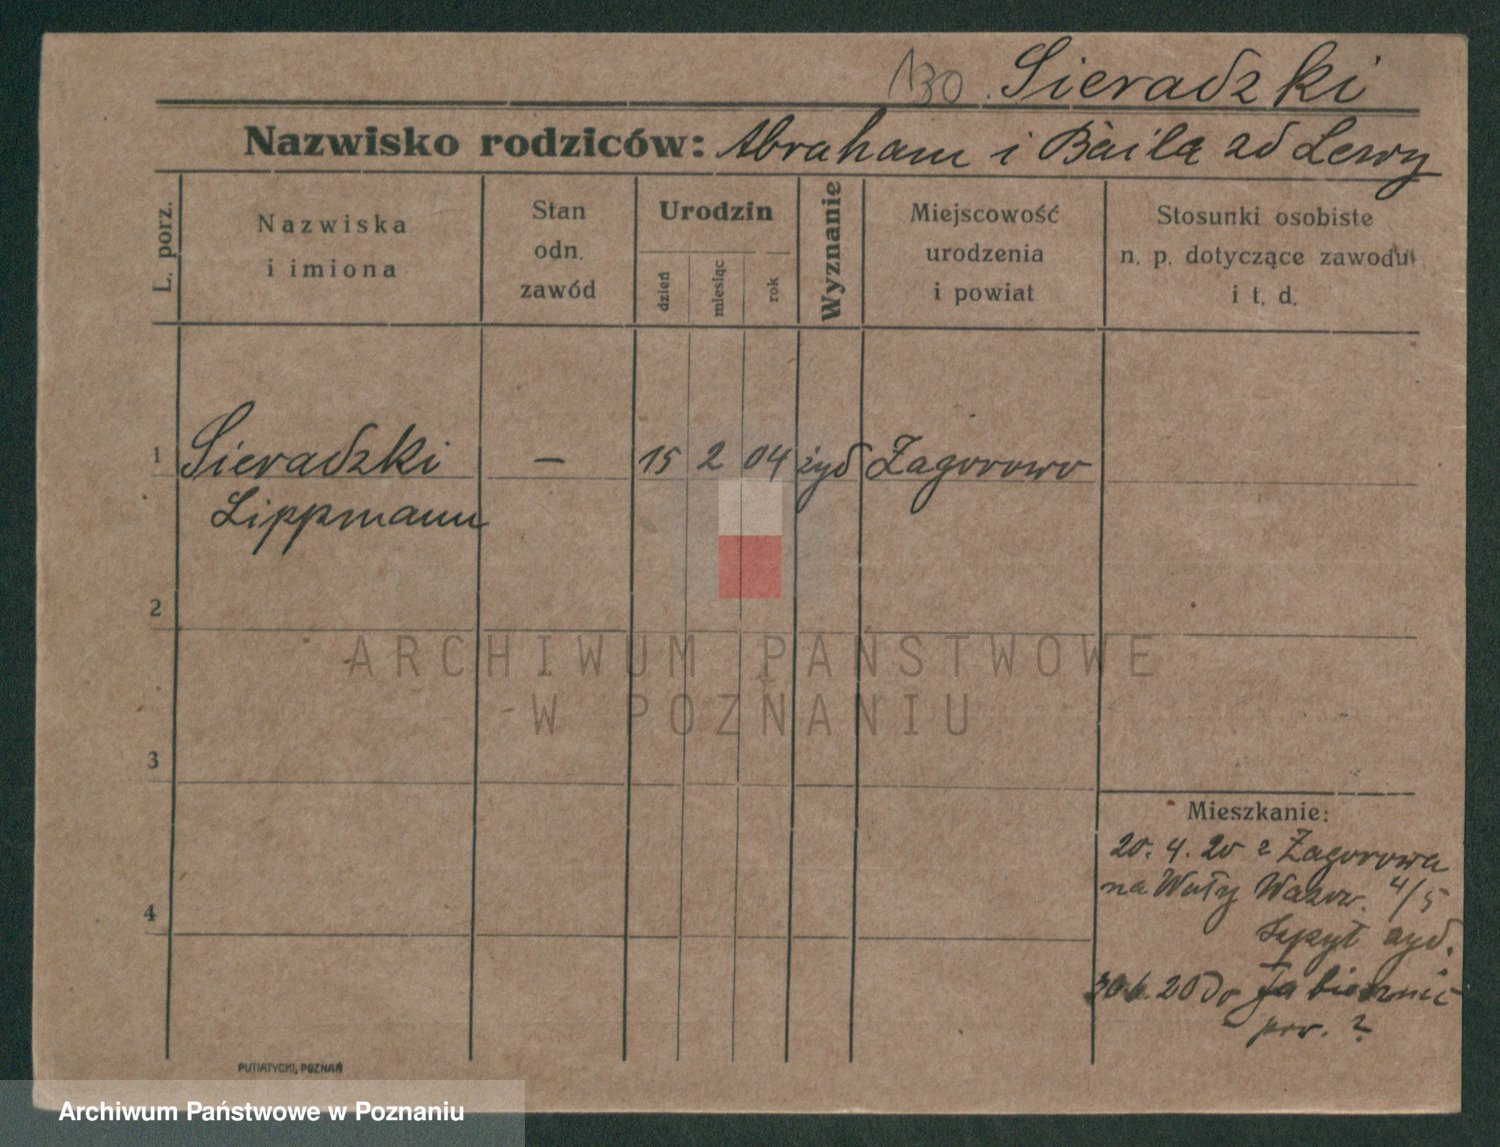 130. Sieradzki
Nazwisko rodziców: Abraham i Baila zd Lewy
L. porz.
Nazwiska
i imiona
Stan
odn.
zawód
Urodzin
dzień
miesiąc
rok
Wyznanie
Miejscowość
urodzenia
i powiat
Stosunki osobiste
n. p. dotyczące zawodu
i t. d.
1 Sieradzki — 15 2 04 żyd Zagorowo
Lippmann
2
ARCHIWUM PAŃSTWOWE
W POZNANIU
3
Mieszkanie:
20. 4. 20 z Zagorowa
na Wały Wazow. 4/5
żyd.
4
30. 6. 20 do
pow. ?
PUTIATYCKI, POZNAŃ
Archiwum Państwowe w Poznaniu